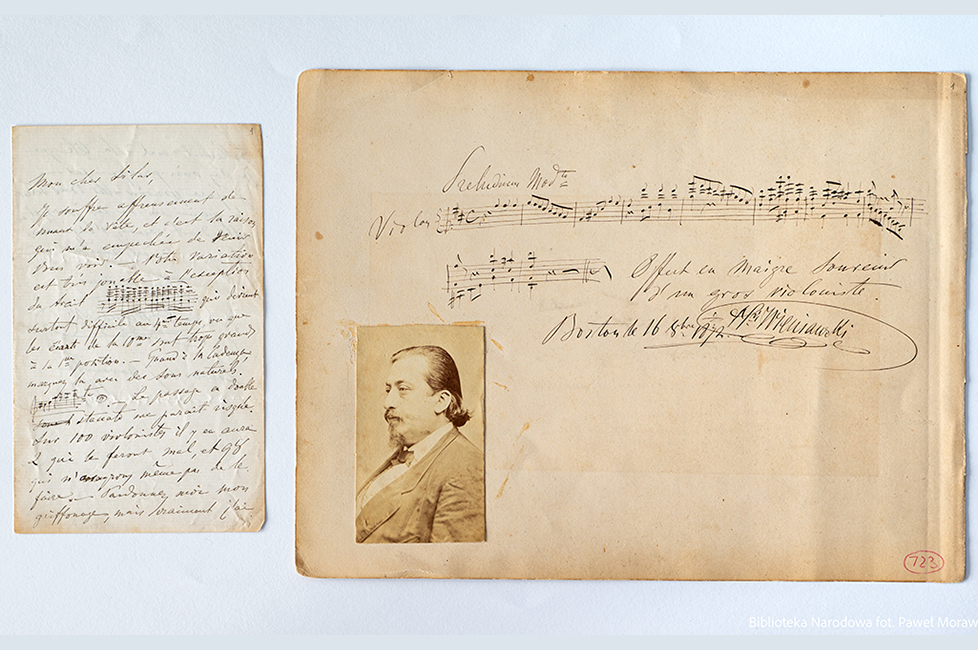 1
Mon cher Silas,
Je souffre affreusement de
maux de tête, et c'est la raison
qui m'a empêchée de venir
Vous voir. – Votre Variation
est très jolie à l'exception
du trait qui devient
surtout difficile au temps vu que
les écarts de la 10me sont trop grands
à la 1re position. – Quand à la Cadence,
marquez la avec des sons naturels.
– Le passage en double
staccato me parait risqué.
Sur 100 violonistes il y en aura
2 qui le feront mal et 98
qui n' même pas de le
faire. – Pardonnez moi mon
griffonage, mais vraiment j'ai
1
Preludium Modto
Violon
Offert en maigre souvenir
D'un gros violoniste.
Boston le 16 8bre 1872. Wieniawski
723
Biblioteka Narodowa fot. Paweł Moraw